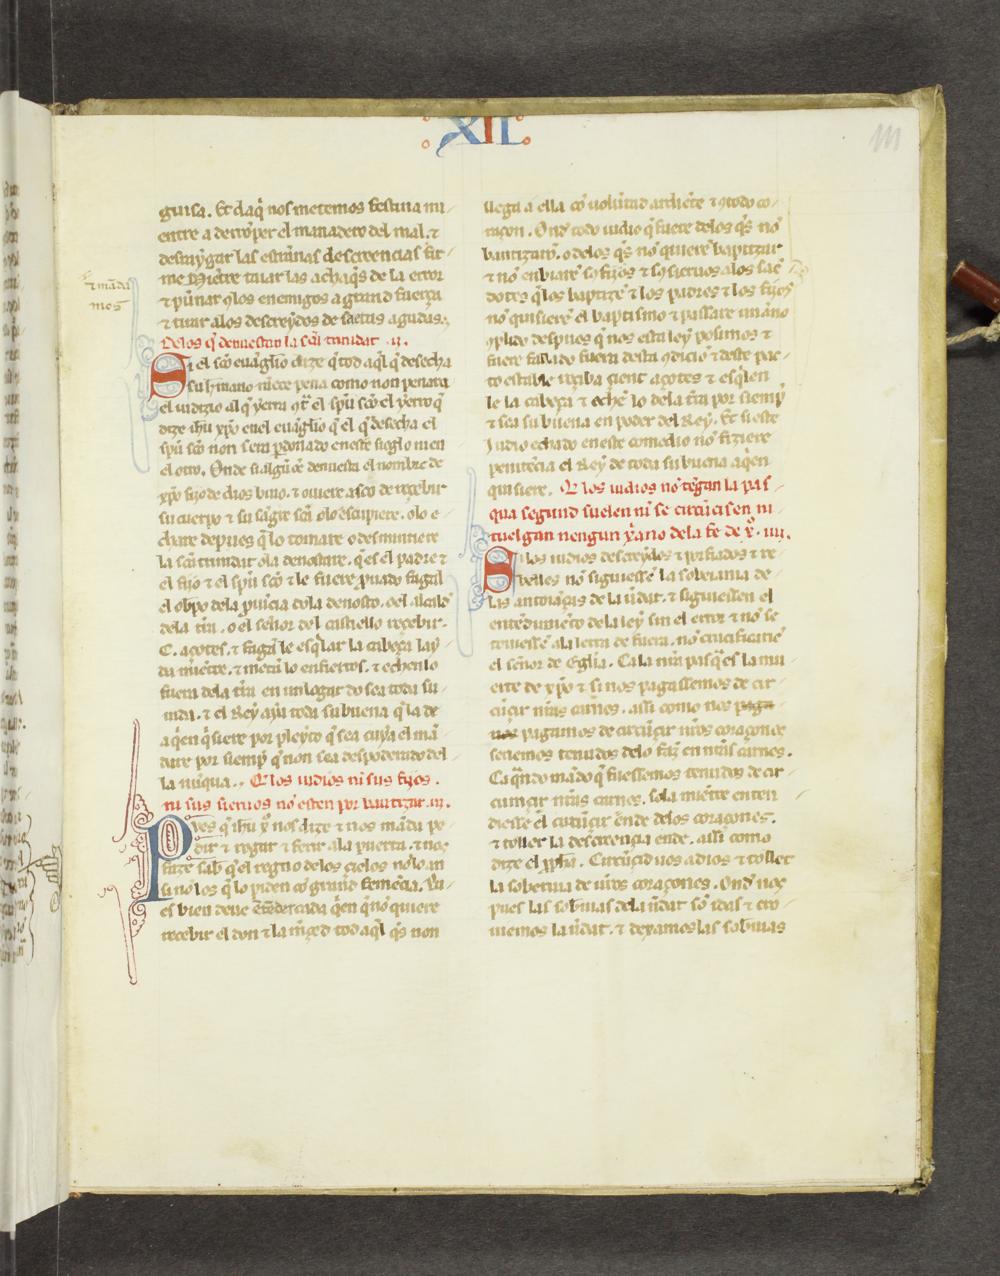 XII
III
guisa. Et daq̃ nos metemos festina mi
entre a derronper el manadero del mal. ⁊
desraygar las estrannas descreencias fir
me mietre taiar las achaq̃s de la error
⁊ pũnar 9los enemigos a grand fuerça
⁊ tirar alos descreydos de saetas agudas.
⁊ mãda
mos
Delos q̃ denuestan la scã trinidat .ii.
Si el scõ euãglio dize q̃ tod aq̃l q̃ desecha
su hr̃mano meree pena como non penara
el iudizio al q̃ yerra 9tra el spũ scõ el yerro q̃
dize ihũ xp̃o en el euãglio q̃ el q̃ desecha el
spũ scõ non sera p̱donado en este sieglo ni en
el otro. Onde si algũo denuesta el nombre de
xp̃o fijo de dios biuo. ⁊ ouiere asco de reçebir
su cuerpo ⁊ su sãgre scã o lo escupiere. o lo e
chare depues q̃ lo tomare o desmintiere
la scã trinidat o la denostare. q̃ es el padre ⁊
el fijo ⁊ el spũ scõ ⁊ le fuere p̱uado fagal
el obp̃o dela p̱uincia do la denosto. o el alcalde
dela trã. o el señor del castiello reçebir
C. açotes. ⁊ fagã le esq̃lar la cabeça lay
da miẽtre. ⁊ metã lo en fierros. ⁊ echen lo
fuera dela trã en un logar do sea toda su
uida. ⁊ el Rey aya toda su buena q̃ la de
a q̃en q̃siere por pleyto q̃ sea cuya el man
dare por siemp̃ q̃ non sea despoderado del
la nũqua. Q̃ los iudios ni sus fijos.
ni sus sieruos no esten por bautizar .iii.
Pues q̃ ihũ x̃ nos dize ⁊ nos mãda pe
dir ⁊ rogar ⁊ ferir ala puerta. ⁊ nos
faze sab̃ q̃ el regno delos çielos no lo an
si no los q̃ lo piden cõ grand femẽcia. Bi
es bien deue seer q̃en q̃ no quiere
reçebir el don ⁊ la mr̃çed tod aq̃l q̃ non
llega a ella cõ uolũtad ardiẽte ⁊ 9todo co
raçon. Onde todo iudio q̃ fuere delos q̃ nõ
bautizarõ. o delos q̃ nõ quiere baptizar
⁊ nõ enbiare sos fijos ⁊ sos sieruos alos saç
dotes q̃ los baptizẽ ⁊ los padres ⁊ los fijos
nõ quisierẽ el baptismo ⁊ passare un ãno
9plido despues q̃ nos esta ley posimos ⁊
fuere fallado fuera desta 9dicion ⁊ deste pac
to estable reçiba çient açotes ⁊ esq̃len
le la cabeça ⁊ echẽ lo dela trã por siemp̃
⁊ sea su buena en poder del Rey. Et si este
Judio echado en este comedio nõ fiziere
penitẽçia el Rey de toda su buena a q̃en
quisiere. Q̃ los iudios nõ tẽgan la pas
qua segund suelen ni se circũcisen ni
tuelgan nengun x̃ano dela fe de x̃. iiii.
Si los iudios descreydos ⁊ porfiados ⁊ re
belles nõ siguiessẽ la soberuia de
las antoiãças de la uĩdat. ⁊ siguiessen el
entẽdimiẽto dela ley sin el error ⁊ nõ se
touiessẽ ala letra de fuera. nõ crucificariẽ
el señor de Eglia. Ca la nr̃a pasq̃ es la mu
erte de xp̃o ⁊ si nos pagassemos de cir
cũçir nr̃as carnes. assi como nos paga
mos pagamos de circũçir nr̃os coraçones
seriemos tenudos delo faz̃ en nr̃as carnes.
Ca q̃ndo mãdo q̃ fuessemos tenudos de cir
cumçir nr̃as carnes. sola miẽtre enten
diesse el circũçir ẽnde delos coraçones.
⁊ toller la descreençia ende. assi como
dize el p̱pha. Circũçid uos a dios ⁊ tollet
la soberuia de uros coraçones. Ond nos
pues las sõbras dela uĩdat sõ idas ⁊ cro
uiemos la uĩdat. ⁊ dexamos las sõbras